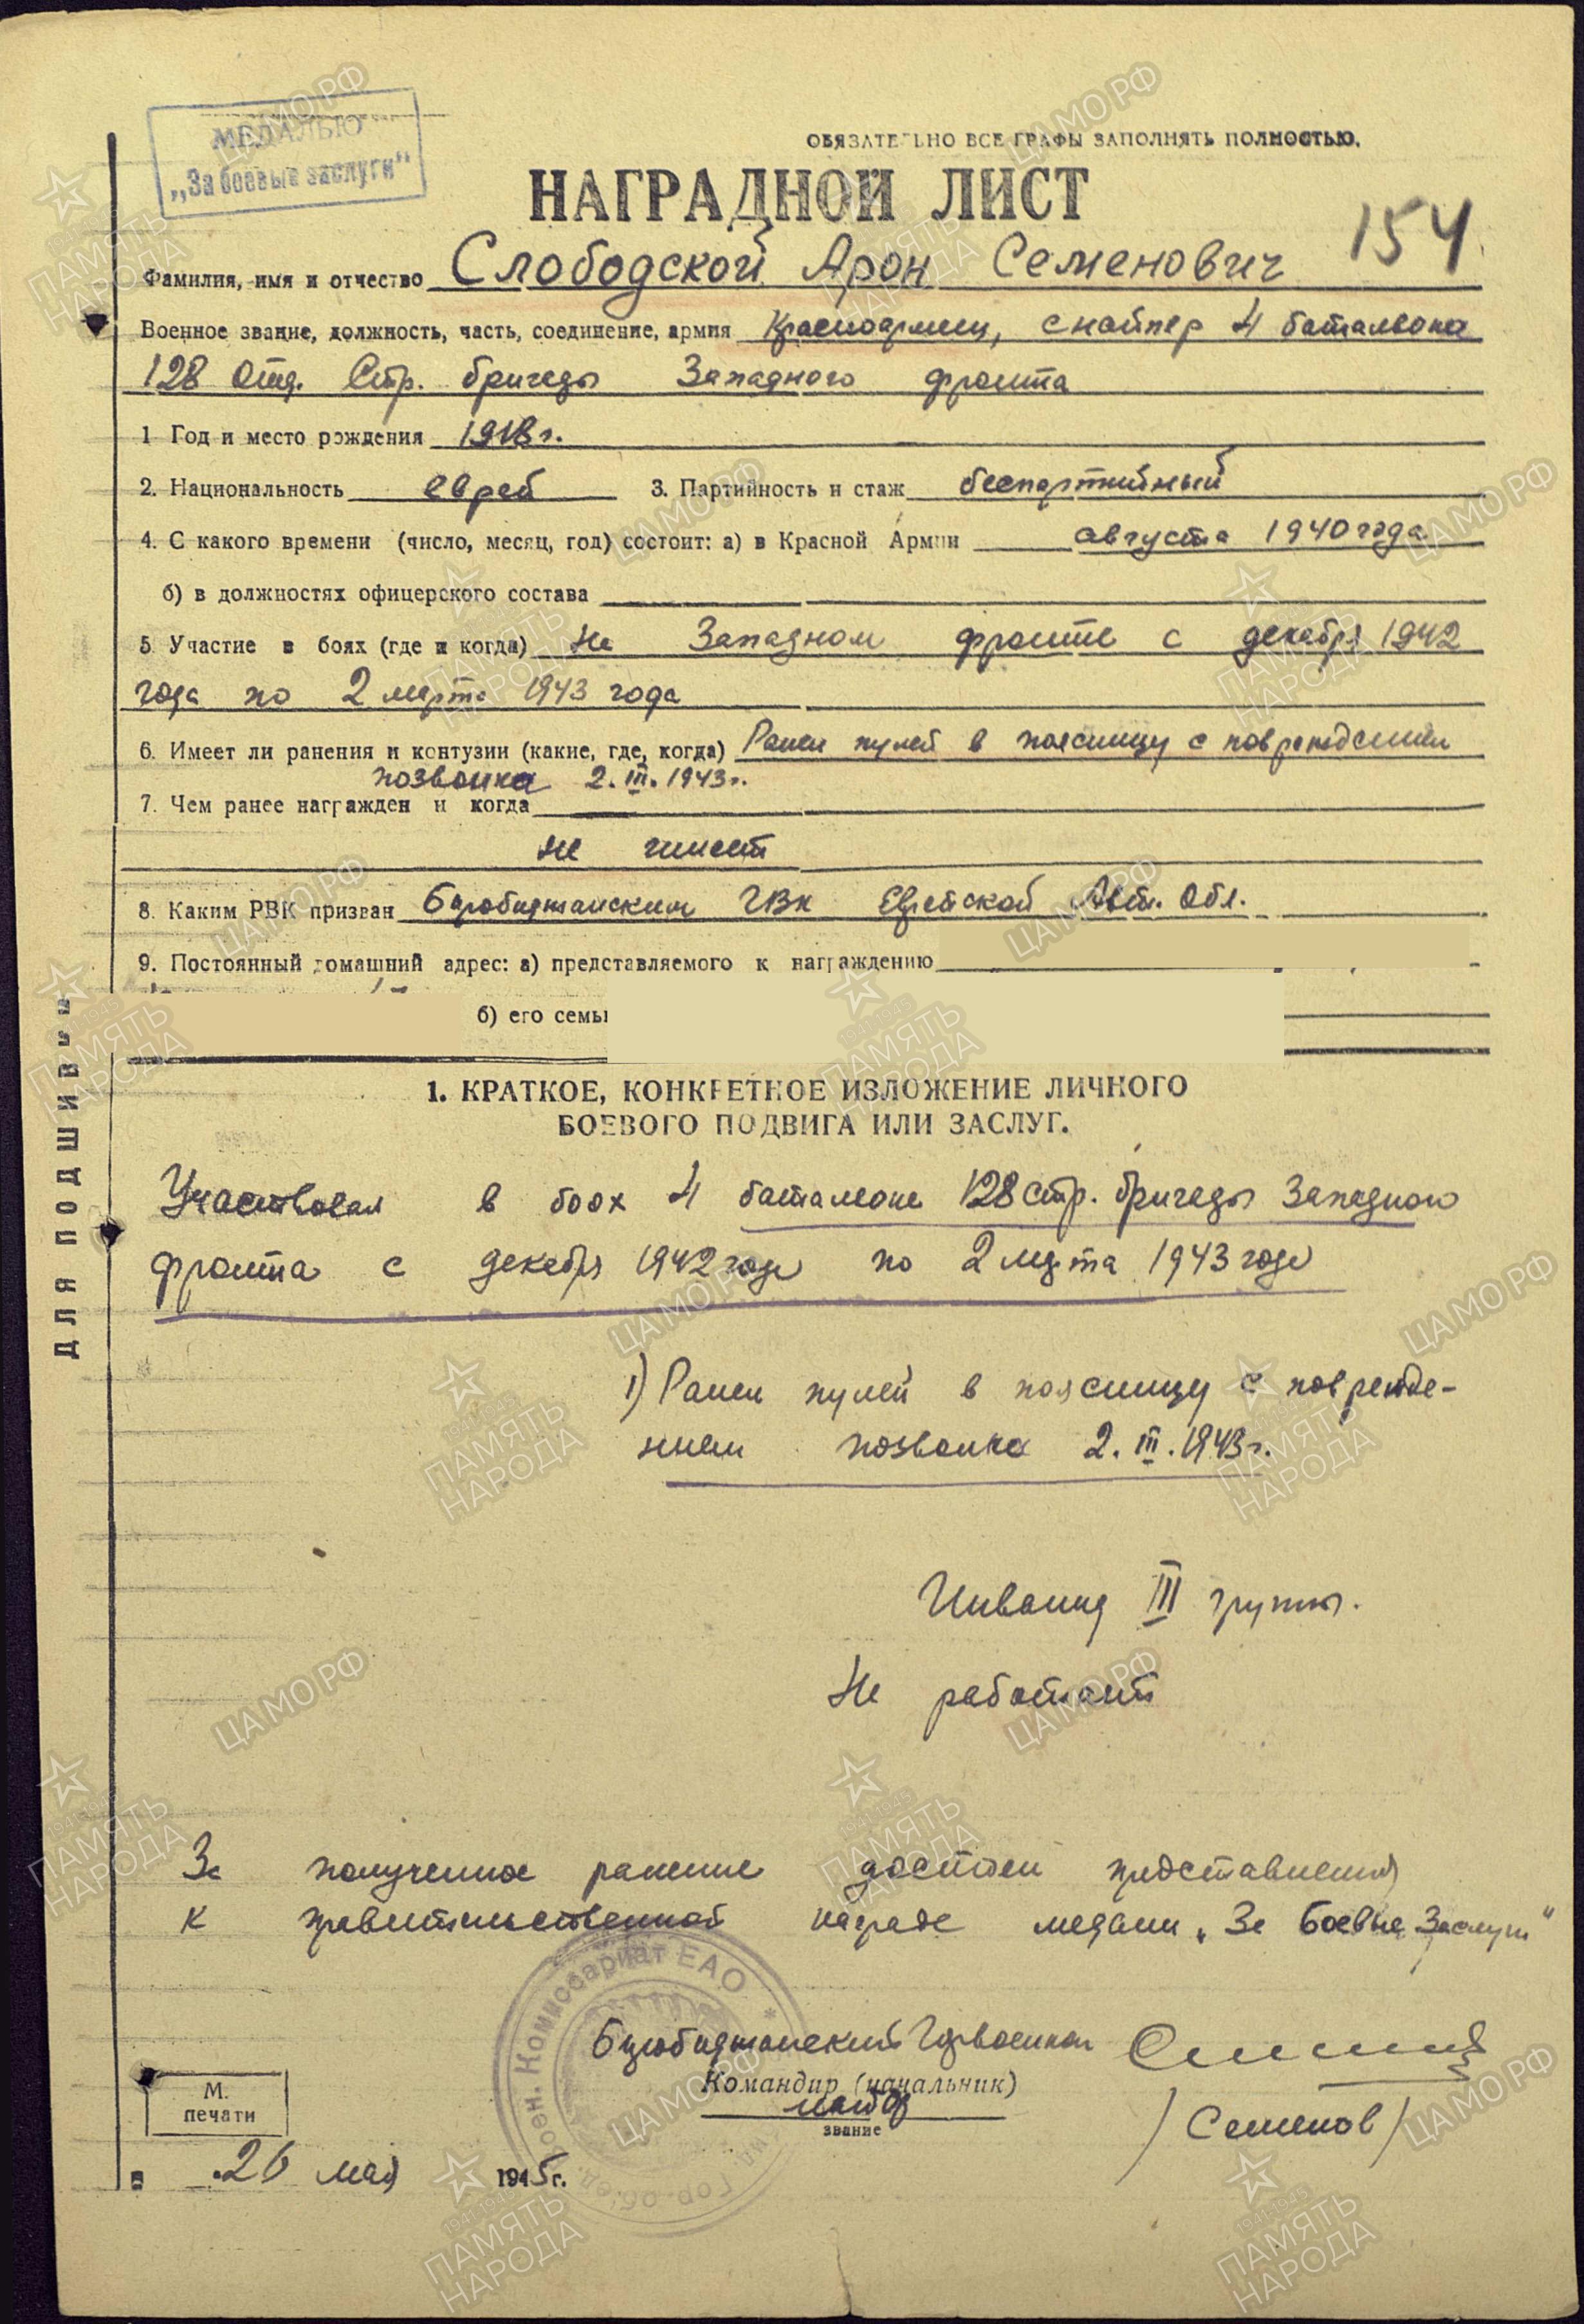 МЕДАЛЬЮ
„За боевые заслуги"
ОБЯЗАТЕЛЬНО ВСЕ ГРАФЫ ЗАПОЛНЯТЬ ПОЛНОСТЬЮ.
НАГРАДНОЙ ЛИСТ
154
Фамилия, имя и отчество Слободской Арон Семенович
Военное звание, должность, часть, соединение, армия Красноармеец, снайпер 4 батальона
128 Отд. Стр. бригады Западного фронта
1 Год и место рождения 1918 г.
2. Национальность еврей 3. Партийность и стаж беспартийный
4. С какого времени (число, месяц, год) состоит: а) в Красной Армии августа 1940 года
б) в должностях офицерского состава
5 Участие в боях (где и когда) На Западном фронте с декабря 1942
года по 2 марта 1943 года
6. Имеет ли ранения и контузии (какие, где, когда) Ранен пулей в поясницу с повреждением
позвонка 2.III.1943г.
7. Чем ранее награжден и когда
не имеет
8. Каким РВК призван Биробиджанским ГВК Еврейской Авт. Обл.
9. Постоянный домашний адрес: а) представляемого к награждению
б) его семьи
1. КРАТКОЕ, КОНКРЕТНОЕ ИЗЛОЖЕНИЕ ЛИЧНОГО
БОЕВОГО ПОДВИГА ИЛИ ЗАСЛУГ.
Участвовал в боях 4 батальона 128 стр. бригады Западного
фронта с декабря 1942 года по 2 марта 1943 года
1) Ранен пулей в поясницу с поврежде-
нием позвонка 2.III.1943г.
Инвалид III группы.
Не работает
За полученное ранение достоин представления
к правительственной награде медали „За Боевые Заслуги"
Воен. Комиссариат ЕАО
Биробиджанский Горвоенком
Командир (начальник)
майор
звание
/Семенов/
М.
печати
„ 26 мая 1945г.
ДЛЯ ПОДШИВКИ
ЦАМО.РФ
ПАМЯТЬ
НАРОДА
1941-1945